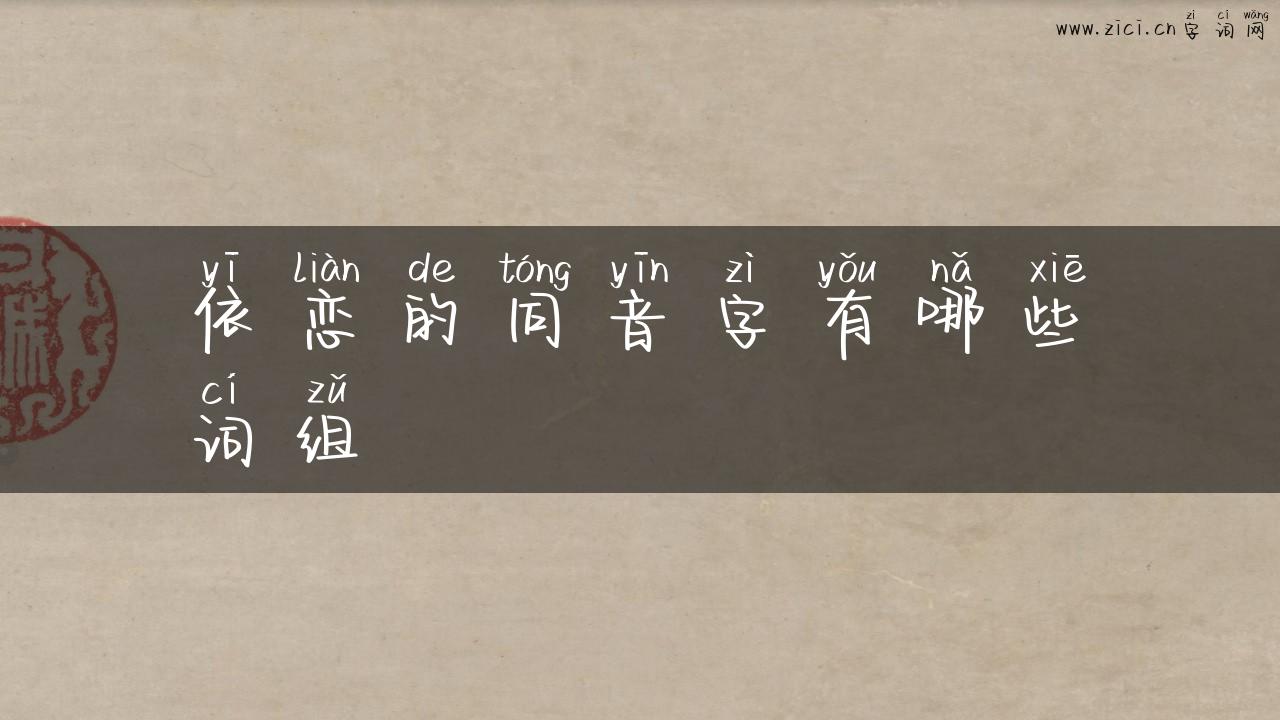 zì cí wǎng
www.zici.cn 字词网
yī liàn de tóng yīn zì yǒu nǎ xiē
依恋的同音字有哪些
cí zǔ
词组